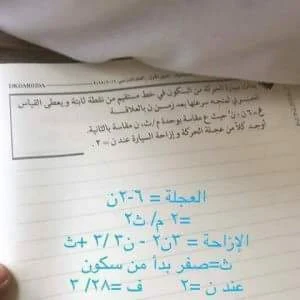 بدأت سيارة الحركة من السكون في خط مستقيم من نقطة ثابتة ويعطى القياس
الجبري لمتجه سرعتها بعد زمن ن بالعلاقة
ع = ٦ن - ن٢ حيث ع مقاسة بوحدة م/ث، ن مقاسة بالثانية.
أوجد كلاً من عجلة الحركة وإزاحة السيارة عند ن = ٢.
العجلة = ٦-٢ن
=٢ م/ث٢
الإزاحة = ٣ن٢ - ن٣/٣ +ث
ث=صفر بدأ من سكون
عند ن =٢ ف =٢٨/٣